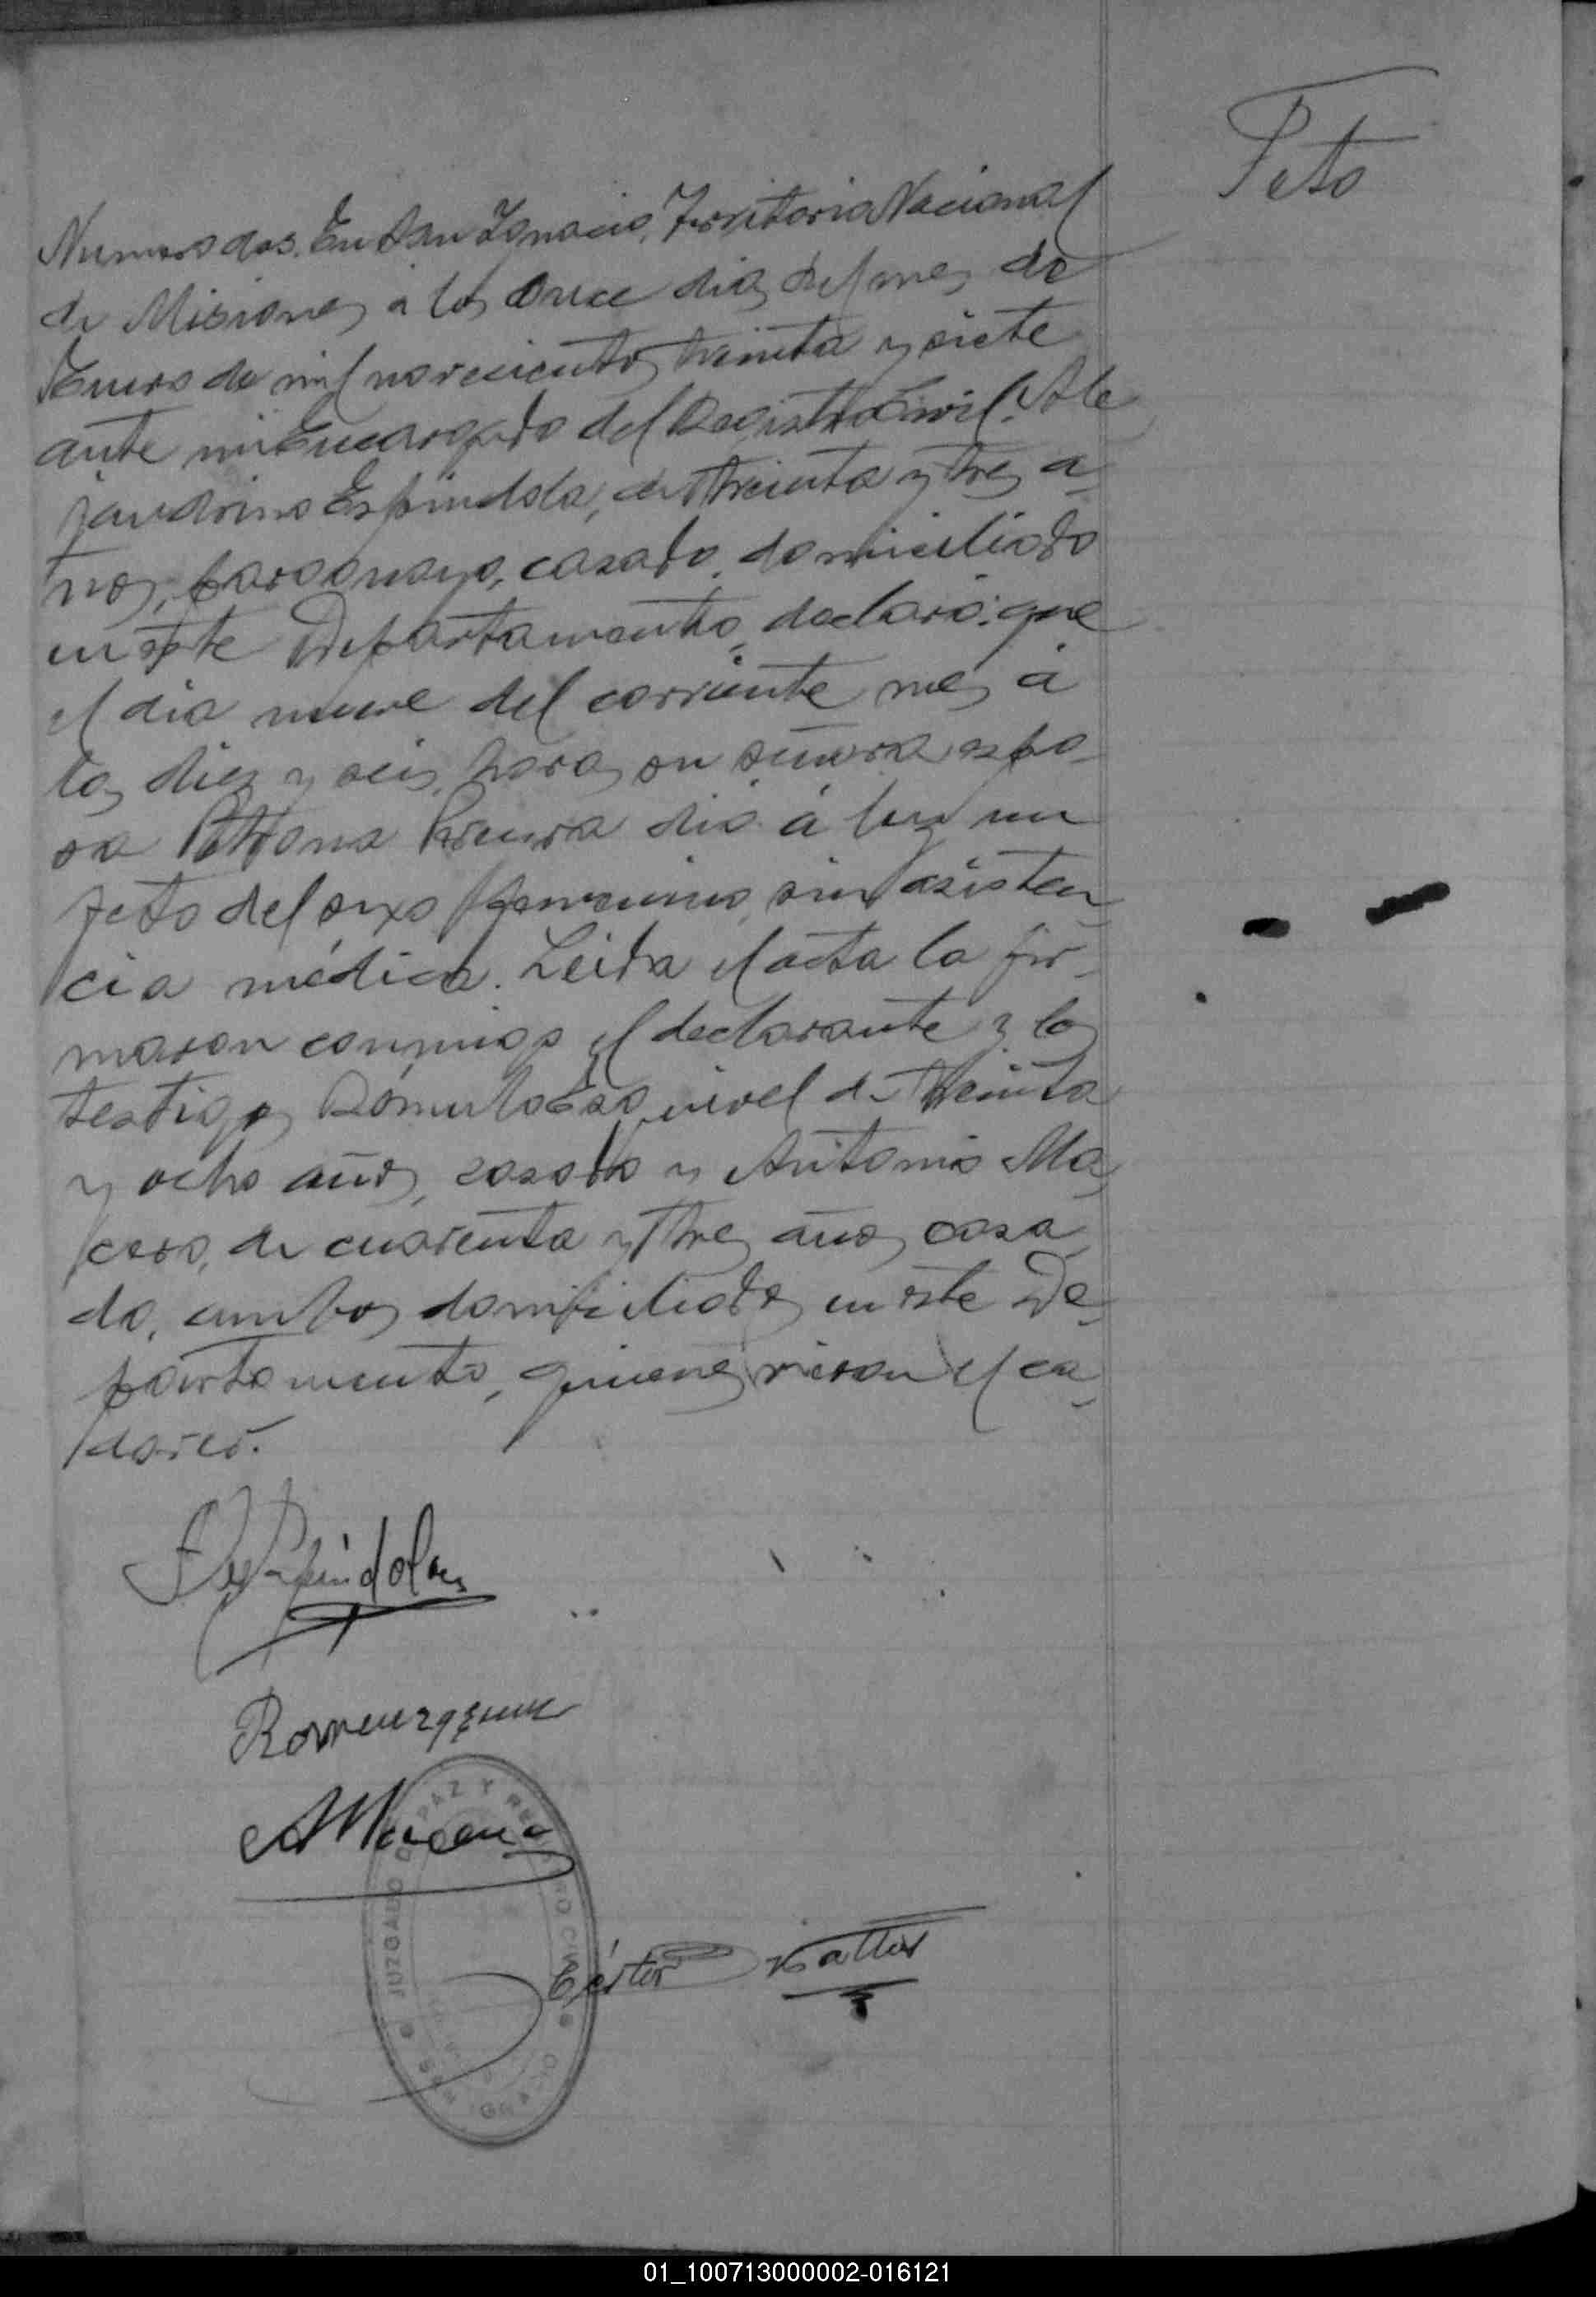 Feto
Numero dos. En San Ignacio, Territorio Nacional
de Misiones a los once dias del mes de
Enero de mil novecientos treinta y siete
ante mi Encargado del Registro Civil, Ale
jandrino Espindola, de treinta y tres a-
ños, paraguayo, casado, domiciliado
en este Departamento, declaró: que
el dia nueve del corriente mes á
las diez y seis horas su señora espo-
sa Petrona dió á luz un
feto del sexo femenino, sin asisten-
cia médica. Leida el acta la fir-
maron conmigo el declarante y los
testigos Rómulo de treinta
y ocho años, casado y Antonio Ma-
cero, de cuarenta y tres años, casa-
do, ambos domiciliados en este De-
partamento, quienes vieron el ca-
daver.
Espindola
JUZGADO DE PAZ Y REGISTRO CIVIL
01_100713000002-016121